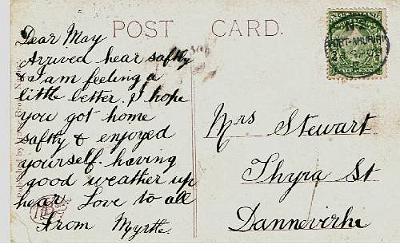 POST CARD.
Dear May
Arrived hear saftly
& am feeling a
little better. I hope
you got home
saftly & enjoyed
yourself. having
good weather up
hear. Love to all
From Myrtle.
Mrs Stewart
Thyra St
Dannevirke